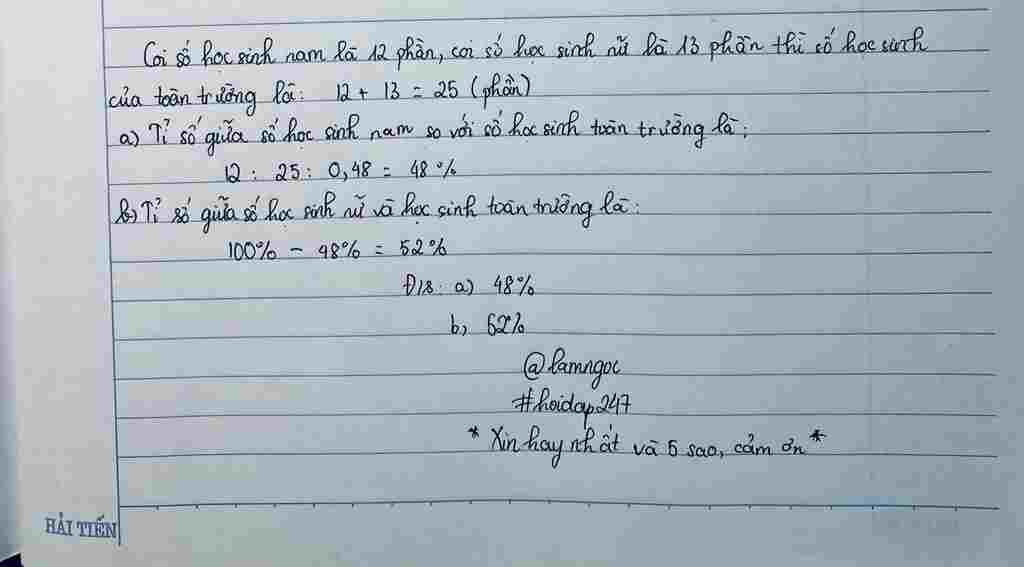 Coi số học sinh nam là 12 phần, coi số học sinh nữ là 13 phần thì số học sinh
của toàn trường là: 12 + 13 = 25 (phần)
a) Tỉ số giữa số học sinh nam so với số học sinh toàn trường là:
12 : 25 : 0,48 = 48%
b) Tỉ số giữa số học sinh nữ và học sinh toàn trường là:
100% - 48% = 52%
Đ/s: a) 48%
b, 52%
@lamngoc
#hoidap247
* Xin hay nhất và 5 sao, cảm ơn *
HẢI TIẾN